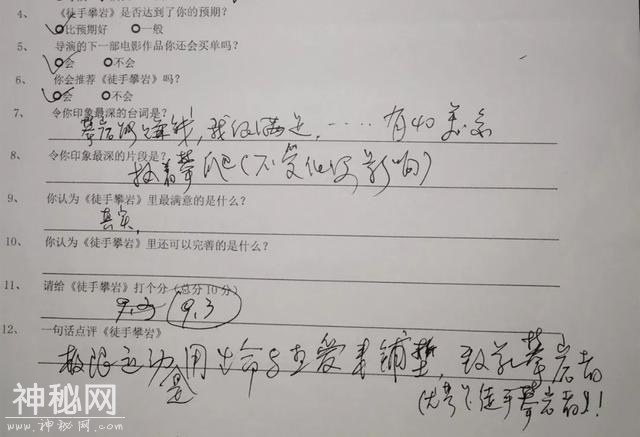 4、《徒手攀岩》是否达到了你的预期？
比预期好 一般
5、导演的下一部电影作品你还会买单吗？
会 不会
6、你会推荐《徒手攀岩》吗？
会 不会
7、令你印象最深的台词是？
攀岩能赚钱，我很满足，……有40美金
8、令你印象最深的片段是？
攀爬（不受任何影响）
9、你认为《徒手攀岩》里最满意的是什么？
真实，
10、你认为《徒手攀岩》里还可以完善的是什么？
11、请给《徒手攀岩》打个分（总分10分）
9.3
12、一句话点评《徒手攀岩》
极限运动是用生命与热爱来铺垫，致敬攀岩者
徒手攀岩者们！
神秘网
www.神秘网.com